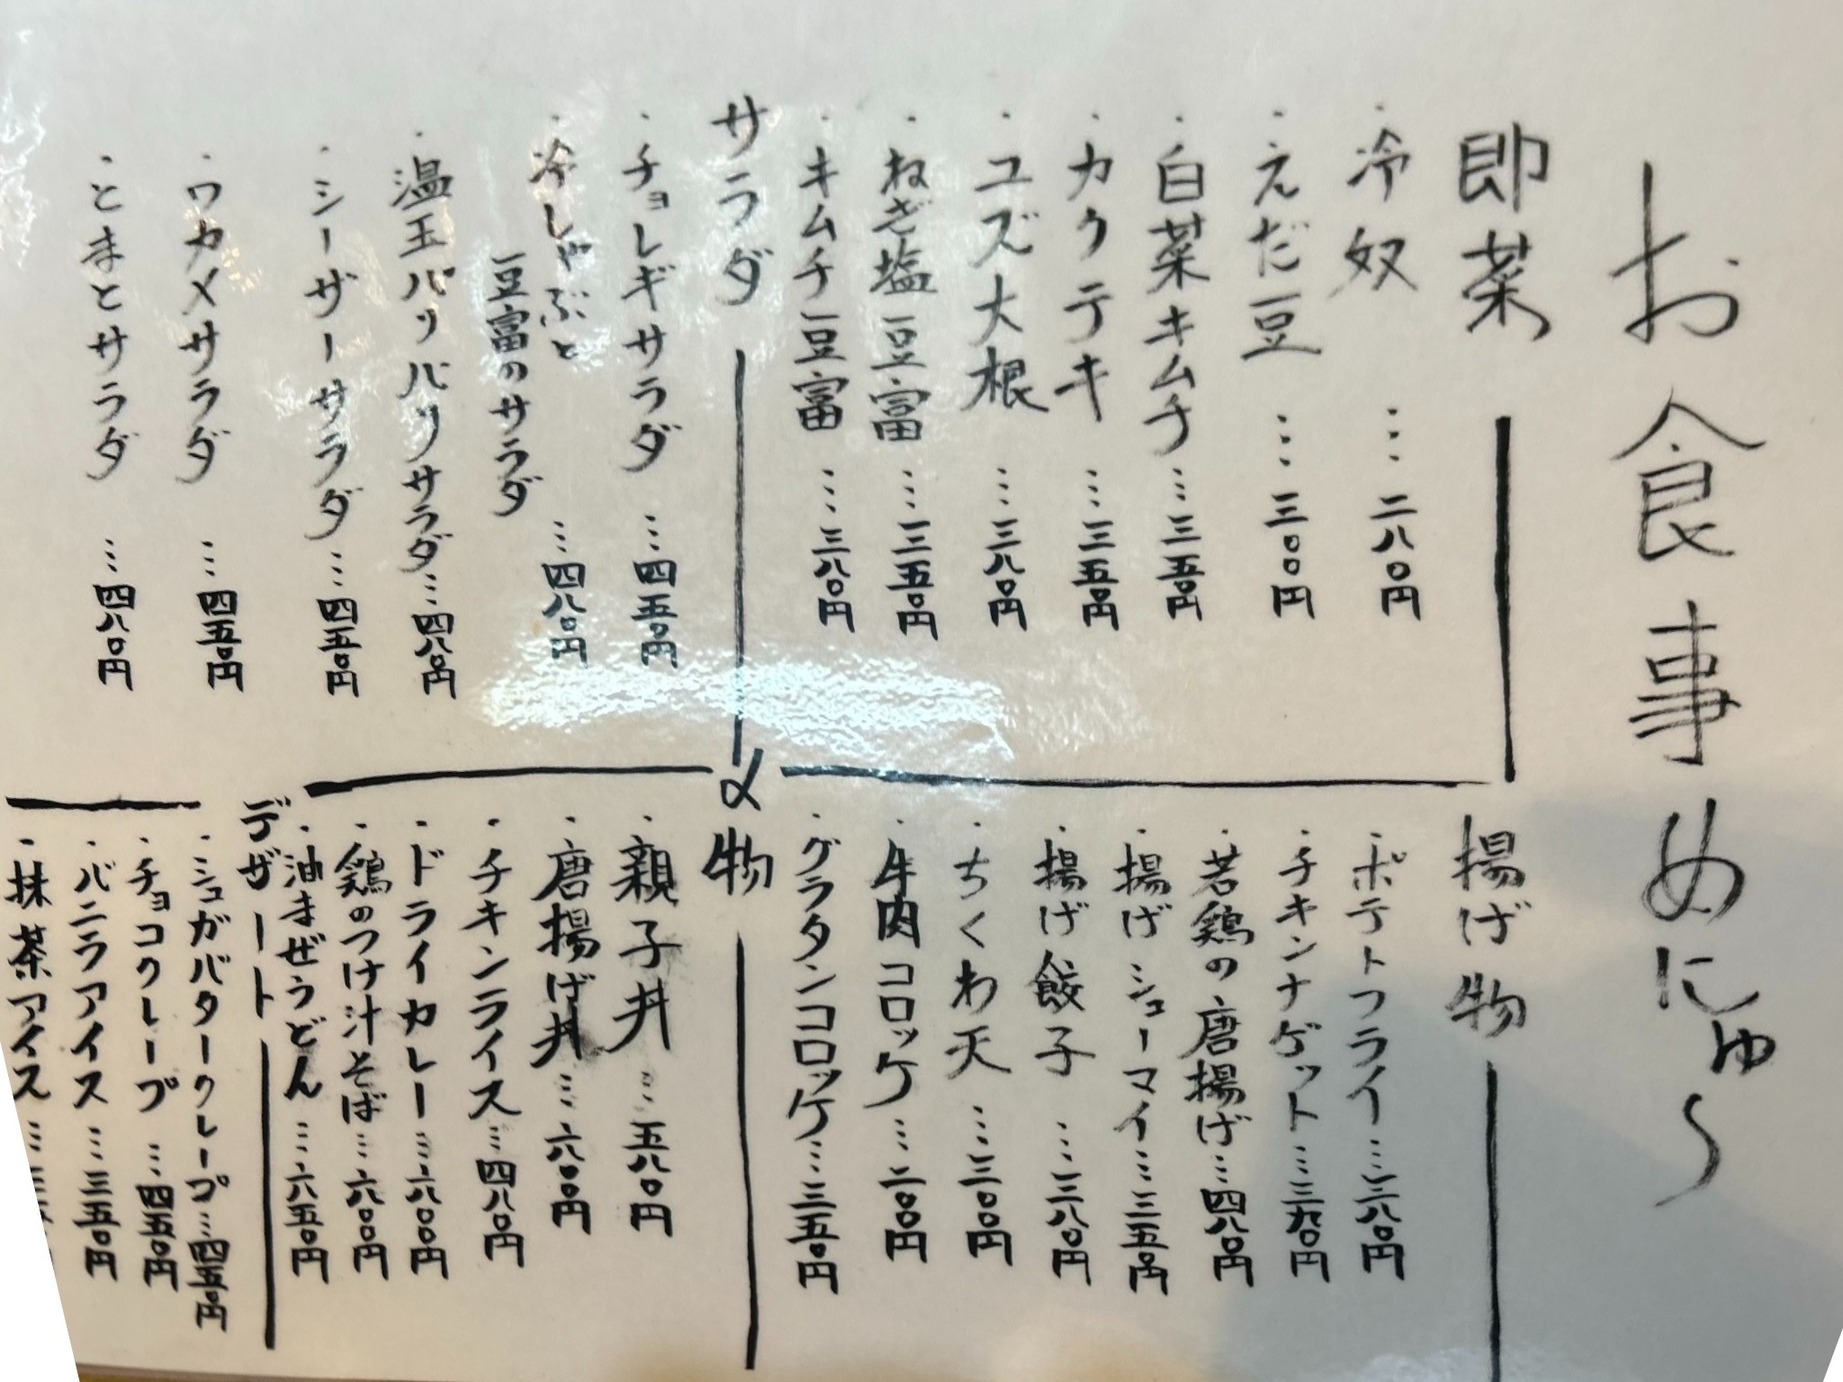 お食事めにゅ〜
即菜
・冷奴 … 二八〇円
・えだ豆 … 三〇〇円
・白菜キムチ … 三五〇円
・カクテキ … 三五〇円
・ユズ大根 … 三八〇円
・ねぎ塩豆富 … 三五〇円
・キムチ豆富 … 三八〇円
サラダ
・チョレギサラダ … 四五〇円
・冷しゃぶと
豆富のサラダ … 四八〇円
・温玉パリパリサラダ … 四八〇円
・シーザーサラダ … 四五〇円
・ワカメサラダ … 四五〇円
・とまとサラダ … 四八〇円
揚げ物
・ポテトフライ … 三八〇円
・チキンナゲット … 三九〇円
・若鶏の唐揚げ … 四八〇円
・揚げシューマイ … 三五〇円
・揚げ餃子 … 三八〇円
・ちくわ天 … 三〇〇円
・牛肉コロッケ … 二〇〇円
・グラタンコロッケ … 三五〇円
〆物
・親子丼 … 五八〇円
・唐揚げ丼 … 六〇〇円
・チキンライス … 四八〇円
・ドライカレー … 六〇〇円
・鶏のつけ汁そば … 六〇〇円
・油まぜうどん … 六五〇円
デザート
・シュガバタークレープ … 四五〇円
・チョコクレープ … 四五〇円
・バニラアイス … 三五〇円
・抹茶アイス …